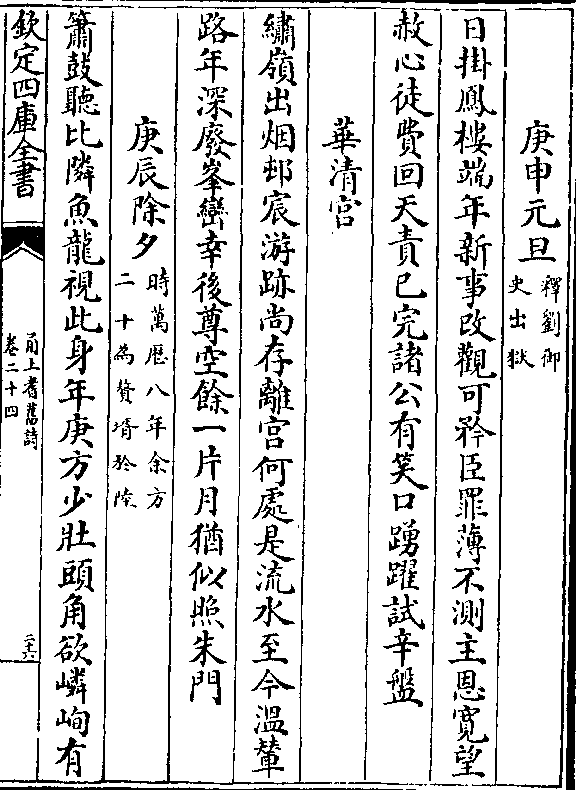 庚申元旦釋劉御史出獄
日掛鳳樓端年新事改觀可矜臣罪薄不測主恩寛望
赦心徒費回天責已完諸公有笑口踴躍試辛盤
華清宮
繡嶺出烟邨宸游跡尚存離宮何處是流水至今溫輦
路年深廢峯巒幸後尊空餘一片月猶似照朱門
庚辰除夕時萬厯八年余方二十為贅壻於陸
簫鼓聽比隣魚龍視此身年庚方少壯頭角欲嶙峋有
欽定四庫全書
甬上耆舊詩
卷二十四
二十六